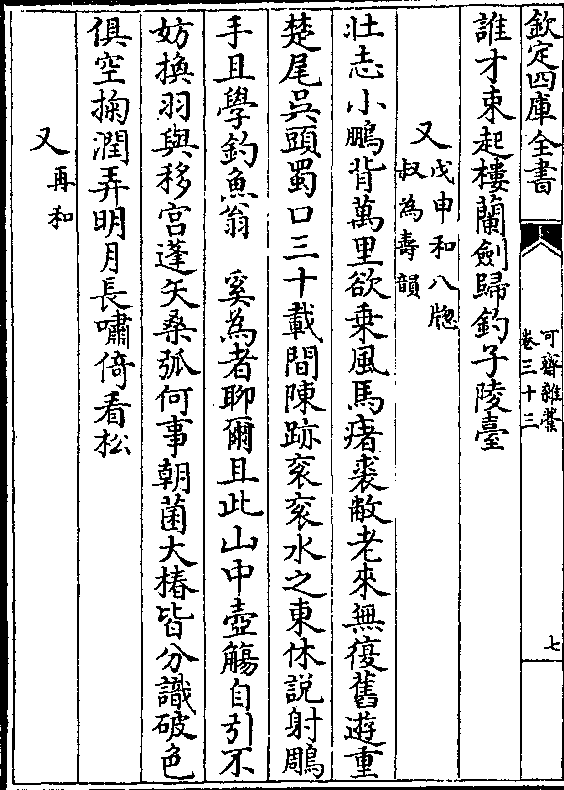 欽定四庫全書
可齋雜藁
卷三十三
七
誰才束起樓蘭劍歸釣子陵臺
又
戊申和八牕
叔為壽韻
壯志小鵬背萬里欲乗風馬瘏裘敝老來無復舊遊重
楚尾吳頭蜀口三十載間陳跡衮衮水之東休説射鵰
手且學釣魚翁　奚為者聊爾且此山中壺觴自引不
妨換羽與移宮蓬矢桑弧何事朝菌大椿皆分識破色
俱空掬澗弄明月長嘯倚看松
又
再和